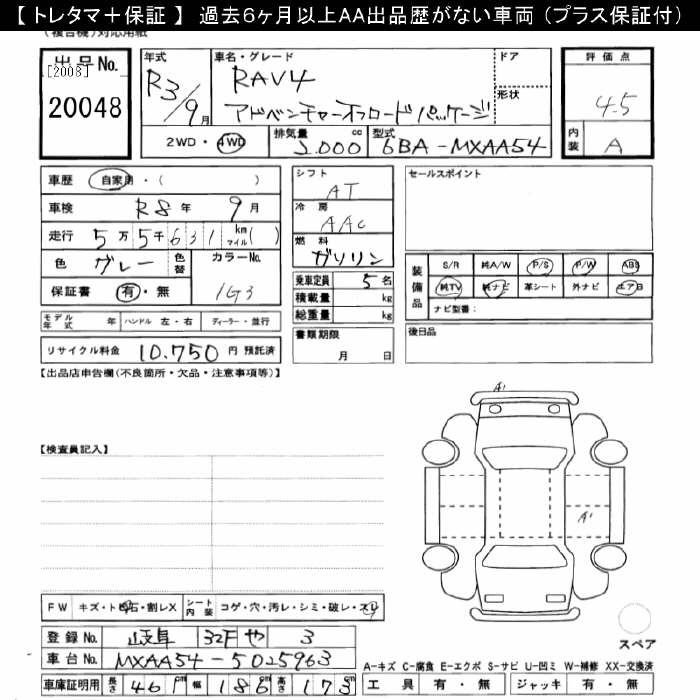 【 トレタマ＋保証 】 過去6ヶ月以上AA出品歴がない車両 (プラス保証付)
(複合機)対応用紙
出品No.
[2008]
20048
年式
R3/9月
車名・グレード
RAV4
アドベンチャーオフロードパッケージ
ドア
形状
2WD・4WD
排気量 2.000 cc
型式 6BA-MXAA54
評価点
4.5
内装 A
車歴 自家用・( )
車検 R8年 9月
走行 5万5千631 km マイル( )
色 グレー 色替 カラーNo. 1G3
保証書 有・無
モデル年式 年 ハンドル 左・右 ディーラー・並行
リサイクル料金 10.750 円 預託済
シフト AT
冷房 AAC
燃料 ガソリン
乗車定員 5名
積載量 kg
総重量 kg
書類期限
月 日
セールスポイント
装備品
S/R 純A/W P/S P/W ABS
純TV 純ナビ 革シート 外ナビ エアB
ナビ型番：
後日品
【出品店申告欄(不良箇所・欠品・注意事項等)】
A1
A1
【検査員記入】
FW キズ・ト石・割レX シート内装 コゲ・穴・汚レ・シミ・破レ・スレ
登録No. 岐阜 32F や 3
車台No. MXAA54-5025963
車庫証明用 長さ 461cm 幅 186cm 高さ 173cm
スペア
A-キズ C-腐食 E-エクボ S-サビ U-凹ミ W-補修 XX-交換済
工具 有・無 ジャッキ 有・無